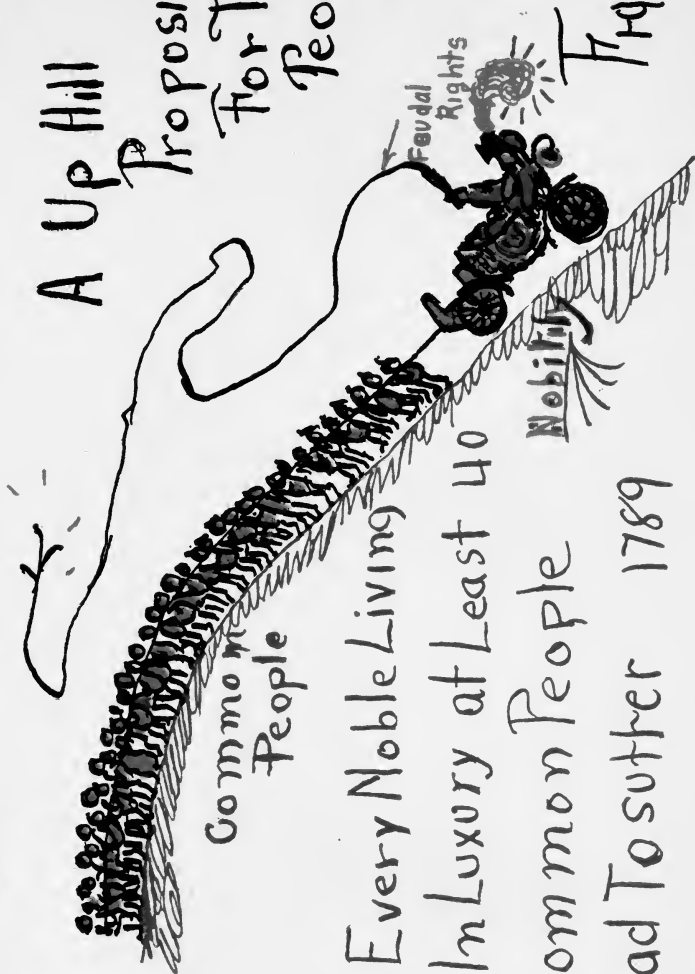 A Up Hill
Proposi
For T
Peo
Feudal
Rights
Nobility
Common
People
Every Noble Living
In Luxury at Least 40
ommon People
ad To suffer 1789